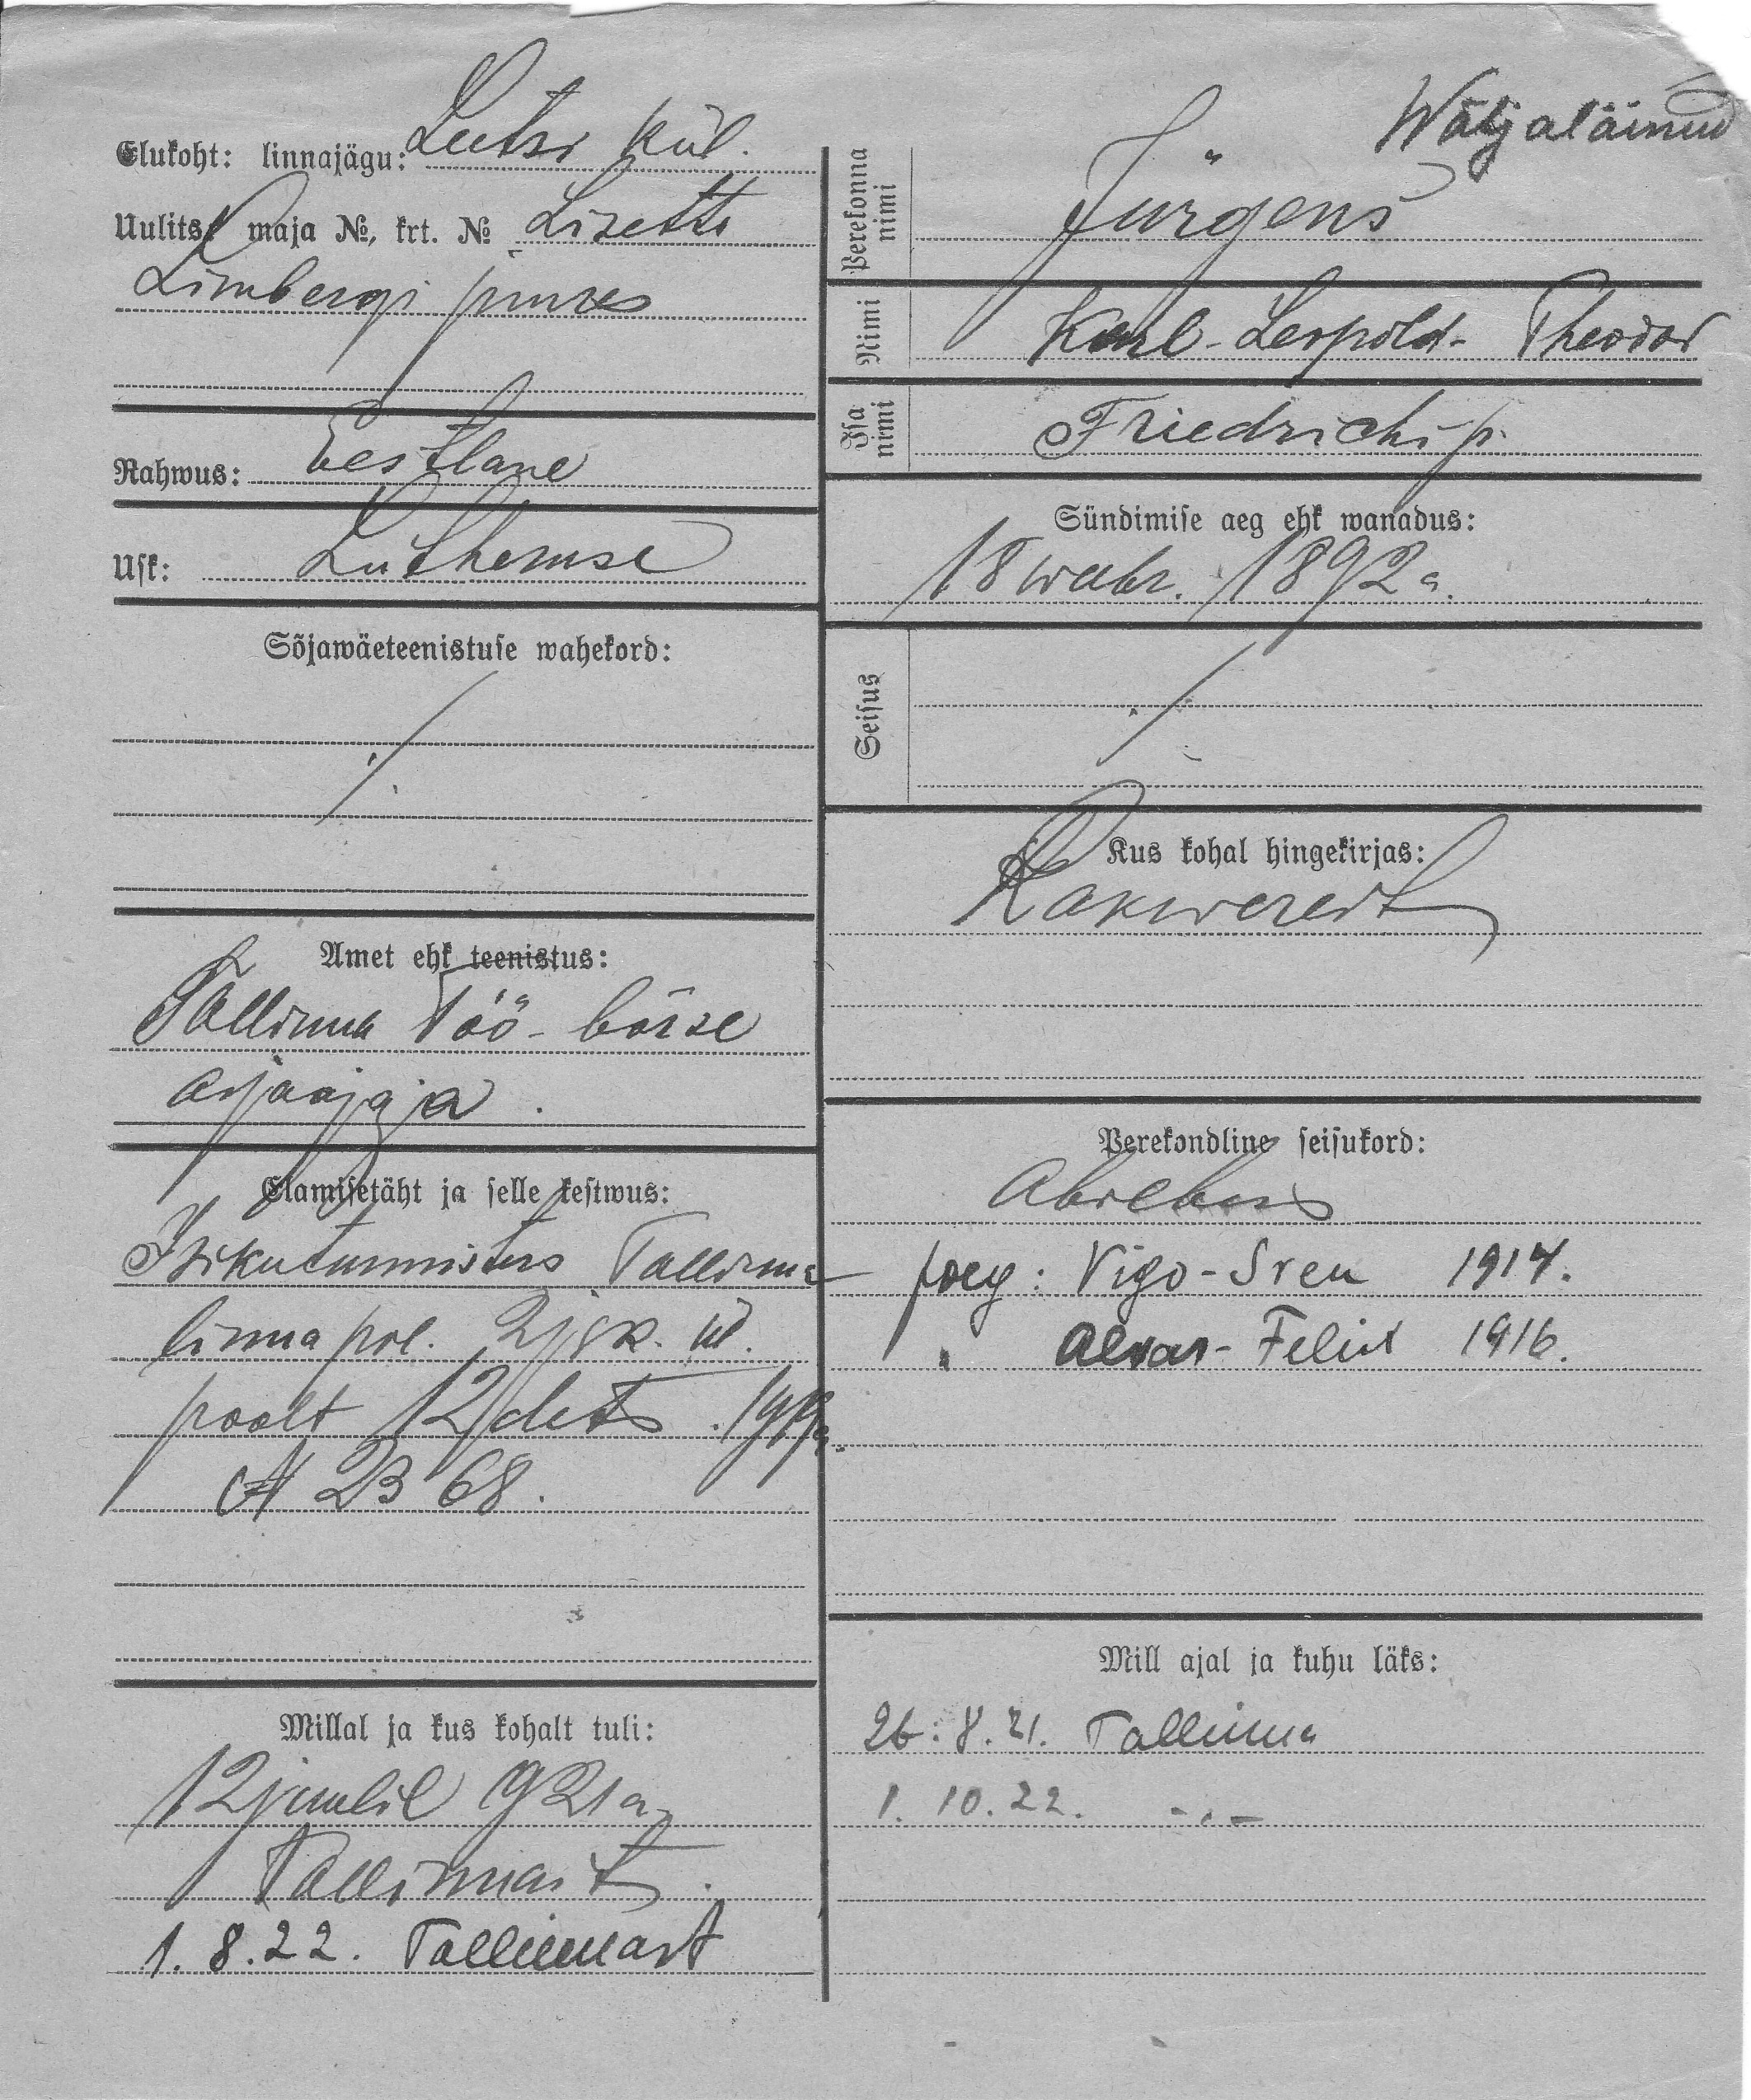 Elukoht: linnajägu: Leetsi kül.
Uulits, maja №, krt. № Lisette
Limbergi juures
Rahwus: Eestlane
Usk: Lutheruse
Sõjawäeteenistuse wahekord:
./.
Amet ehk teenistus:
Tallinna Töö-börse
asjaajaja.
Elamisetäht ja selle kestwus:
Isikutunnistus Tallinna
linna pol. 2 jsk. ül.
poolt 12 dets. 1919a.
№ 2368.
Millal ja kus kohalt tuli:
12 juulil 921 a.
Tallinnast.
1.8.22. Tallinnast
Wäljaläinud
Perekonna nimi Jürgens
Nimi Karl-Leopold-Theodor
Isa nimi Friedrichi p.
Sündimise aeg ehk wanadus:
18 webr. 1892 a.
Seisus ./.
Kus kohal hingekirjas:
Rakweres
Perekondline seisukord:
Abielus
poeg: Vigo-Sven 1914.
" Alvar-Felix 1916.
Mill ajal ja kuhu läks:
26.8.21. Tallinna
1.10.22. -„-